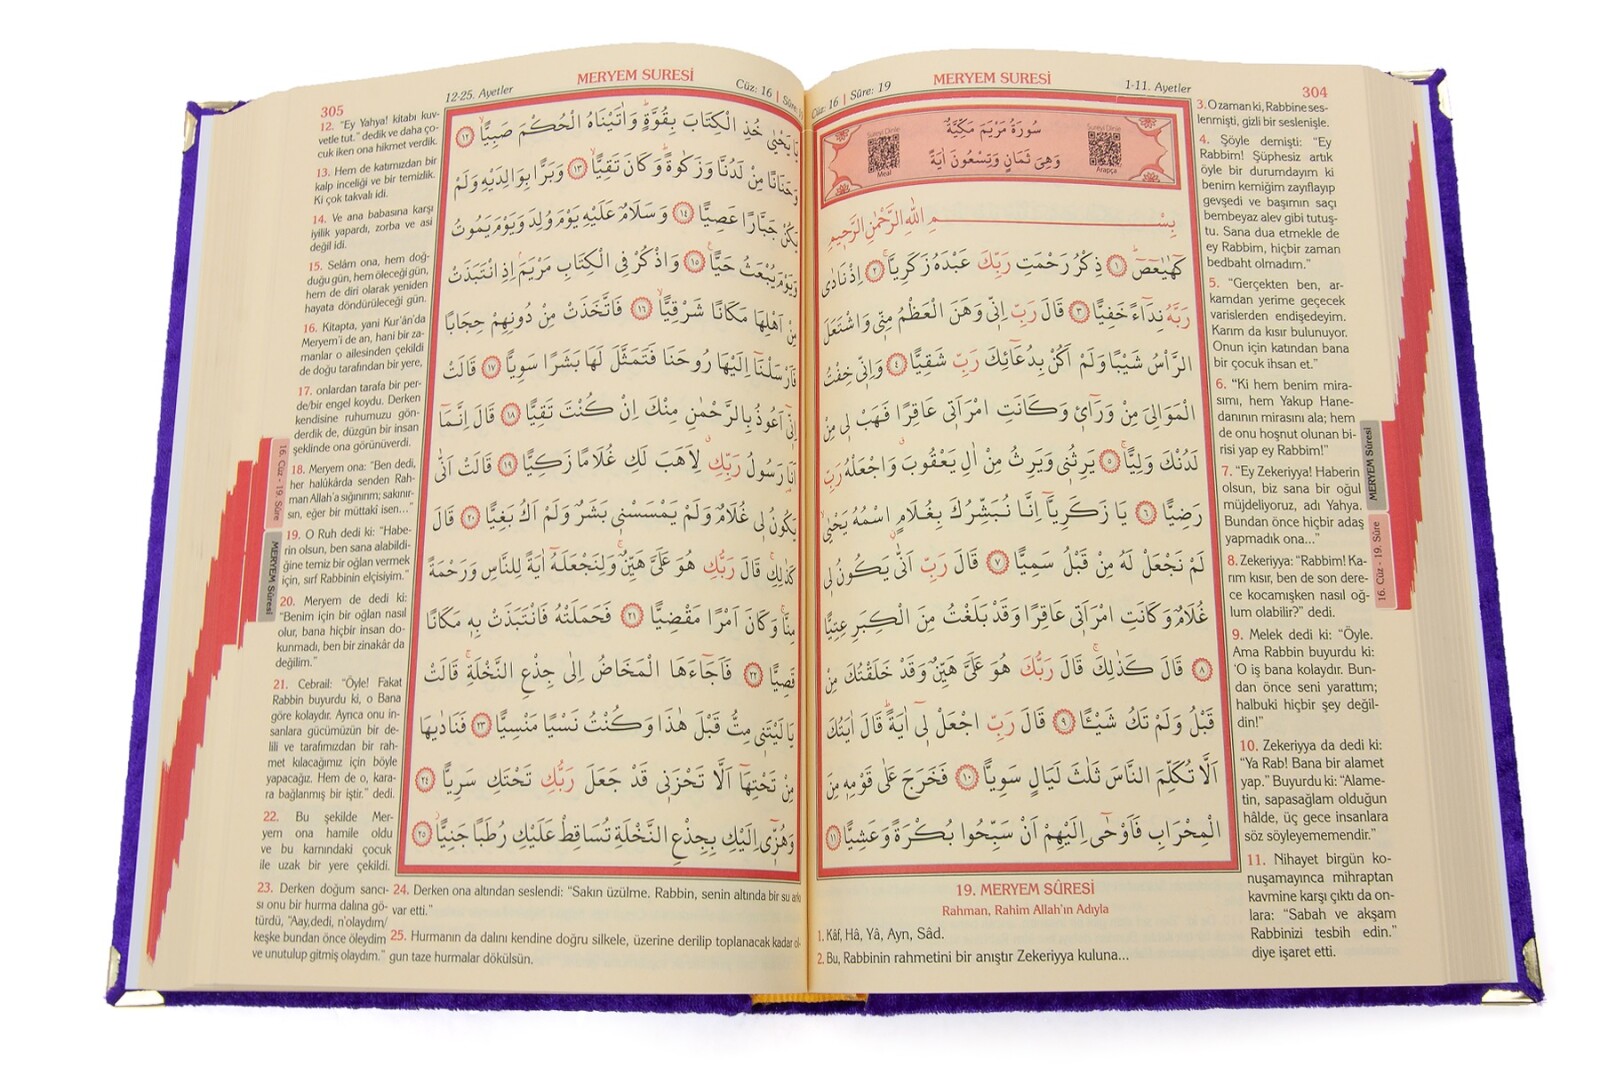 304
1-11. Ayetler
MERYEM SURESİ
Cüz: 16 | Sûre: 19
سُورَةُ مَرْيَمَ مَكِّيَّةٌ
وَهِيَ ثَمَانٍ وَتِسْعُونَ اٰيَةً
Sureyi Dinle
Arapça
Sureyi Dinle
Meal
بِسْمِ اللّٰهِ الرَّحْمٰنِ الرَّحِيمِ
كٓهٰيٰعٓصٓ ﴿١﴾ ذِكْرُ رَحْمَتِ رَبِّكَ عَبْدَهُ زَكَرِيَّا ﴿٢﴾ اِذْ نَادٰى
رَبَّهُ نِدَٓاءً خَفِيًّا ﴿٣﴾ قَالَ رَبِّ اِنّ۪ي وَهَنَ الْعَظْمُ مِنّ۪ي وَاشْتَعَلَ
الرَّأْسُ شَيْبًا وَلَمْ اَكُنْ بِدُعَٓائِكَ رَبِّ شَقِيًّا ﴿٤﴾ وَاِنّ۪ي خِفْتُ
الْمَوَالِيَ مِنْ وَرَٓاء۪ي وَكَانَتِ امْرَاَت۪ي عَاقِرًا فَهَبْ ل۪ي مِنْ
لَدُنْكَ وَلِيًّا ﴿٥﴾ يَرِثُن۪ي وَيَرِثُ مِنْ اٰلِ يَعْقُوبَ وَاجْعَلْهُ رَبِّ
رَضِيًّا ﴿٦﴾ يَا زَكَرِيَّٓا اِنَّا نُبَشِّرُكَ بِغُلَامٍۨ اسْمُهُ يَحْيٰى
لَمْ نَجْعَلْ لَهُ مِنْ قَبْلُ سَمِيًّا ﴿٧﴾ قَالَ رَبِّ اَنّٰى يَكُونُ ل۪ي
غُلَامٌ وَكَانَتِ امْرَاَت۪ي عَاقِرًا وَقَدْ بَلَغْتُ مِنَ الْكِبَرِ عِتِيًّا
﴿٨﴾ قَالَ كَذٰلِكَ قَالَ رَبُّكَ هُوَ عَلَيَّ هَيِّنٌ وَقَدْ خَلَقْتُكَ مِنْ
قَبْلُ وَلَمْ تَكُ شَيْـًٔا ﴿٩﴾ قَالَ رَبِّ اجْعَلْ ل۪ٓي اٰيَةً قَالَ اٰيَتُكَ
اَلَّا تُكَلِّمَ النَّاسَ ثَلٰثَ لَيَالٍ سَوِيًّا ﴿١٠﴾ فَخَرَجَ عَلٰى قَوْمِه۪ مِنَ
الْمِحْرَابِ فَاَوْحٰٓى اِلَيْهِمْ اَنْ سَبِّحُوا بُكْرَةً وَعَشِيًّا ﴿١١﴾
19. MERYEM SÛRESİ
Rahman, Rahim Allah'ın Adıyla
1. Kâf, Hâ, Yâ, Ayn, Sâd.
2. Bu, Rabbinin rahmetini bir anıştır Zekeriyya kuluna...
3. O zaman ki, Rabbine ses-
lenmişti, gizli bir seslenişle.
4. Şöyle demişti: “Ey
Rabbim! Şüphesiz artık
öyle bir durumdayım ki
benim kemiğim zayıflayıp
gevşedi ve başımın saçı
bembeyaz alev gibi tutuş-
tu. Sana dua etmekle de
ey Rabbim, hiçbir zaman
bedbaht olmadım.”
5. “Gerçekten ben, ar-
kamdan yerime geçecek
varislerden endişedeyim.
Karım da kısır bulunuyor.
Onun için katından bana
bir çocuk ihsan et.”
6. “Ki hem benim mira-
sımı, hem Yakup Hane-
danının mirasını ala; hem
de onu hoşnut olunan bi-
risi yap ey Rabbim!”
7. “Ey Zekeriyya! Haberin
olsun, biz sana bir oğul
müjdeliyoruz, adı Yahya.
Bundan önce hiçbir adaş
yapmadık ona...”
8. Zekeriyya: “Rabbim! Ka-
rım kısır, ben de son dere-
ce kocamışken nasıl oğ-
lum olabilir?” dedi.
9. Melek dedi ki: “Öyle.
Ama Rabbin buyurdu ki:
‘O iş bana kolaydır. Bun-
dan önce seni yarattım;
halbuki hiçbir şey değil-
din!”
10. Zekeriyya da dedi ki:
“Ya Rab! Bana bir alamet
yap.” Buyurdu ki: “Alame-
tin, sapasağlam olduğun
hâlde, üç gece insanlara
söz söyleyememendir.”
11. Nihayet birgün ko-
nuşamayınca mihraptan
kavmine karşı çıktı da on-
lara: “Sabah ve akşam
Rabbinizi tesbih edin.”
diye işaret etti.
MERYEM Sûresi
16. Cüz - 19. Sûre
305
12-25. Ayetler
MERYEM SURESİ
Cüz: 16 | Sûre:
يَا يَحْيٰى خُذِ الْكِتَابَ بِقُوَّةٍ وَاٰتَيْنَاهُ الْحُكْمَ صَبِيًّا ﴿١٢﴾
وَحَنَانًا مِنْ لَدُنَّا وَزَكٰوةً وَكَانَ تَقِيًّا ﴿١٣﴾ وَبَرًّا بِوَالِدَيْهِ وَلَمْ
يَكُنْ جَبَّارًا عَصِيًّا ﴿١٤﴾ وَسَلَامٌ عَلَيْهِ يَوْمَ وُلِدَ وَيَوْمَ يَمُوتُ
وَيَوْمَ يُبْعَثُ حَيًّا ﴿١٥﴾ وَاذْكُرْ فِي الْكِتَابِ مَرْيَمَ اِذِ انْتَبَذَتْ
مِنْ اَهْلِهَا مَكَانًا شَرْقِيًّا ﴿١٦﴾ فَاتَّخَذَتْ مِنْ دُونِهِمْ حِجَابًا
فَاَرْسَلْنَٓا اِلَيْهَا رُوحَنَا فَتَمَثَّلَ لَهَا بَشَرًا سَوِيًّا ﴿١٧﴾ قَالَتْ
اِنّ۪ٓي اَعُوذُ بِالرَّحْمٰنِ مِنْكَ اِنْ كُنْتَ تَقِيًّا ﴿١٨﴾ قَالَ اِنَّمَٓا
اَنَا رَسُولُ رَبِّكِ لِاَهَبَ لَكِ غُلَامًا زَكِيًّا ﴿١٩﴾ قَالَتْ اَنّٰى
يَكُونُ ل۪ي غُلَامٌ وَلَمْ يَمْسَسْن۪ي بَشَرٌ وَلَمْ اَكُ بَغِيًّا ﴿٢٠﴾ قَالَ
كَذٰلِكِ قَالَ رَبُّكِ هُوَ عَلَيَّ هَيِّنٌ وَلِنَجْعَلَهُٓ اٰيَةً لِلنَّاسِ وَرَحْمَةً
مِنَّا وَكَانَ اَمْرًا مَقْضِيًّا ﴿٢١﴾ فَحَمَلَتْهُ فَانْتَبَذَتْ بِه۪ مَكَانًا
قَصِيًّا ﴿٢٢﴾ فَاَجَٓاءَهَا الْمَخَاضُ اِلٰى جِذْعِ النَّخْلَةِ قَالَتْ
يَا لَيْتَن۪ي مِتُّ قَبْلَ هٰذَا وَكُنْتُ نَسْيًا مَنْسِيًّا ﴿٢٣﴾ فَنَادٰيهَا
مِنْ تَحْتِهَٓا اَلَّا تَحْزَن۪ي قَدْ جَعَلَ رَبُّكِ تَحْتَكِ سَرِيًّا ﴿٢٤﴾
وَهُزّ۪ٓي اِلَيْكِ بِجِذْعِ النَّخْلَةِ تُسَاقِطْ عَلَيْكِ رُطَبًا جَنِيًّا ﴿٢٥﴾
12. “Ey Yahya! kitabı kuv-
vetle tut.” dedik ve daha ço-
cuk iken ona hikmet verdik.
13. Hem de katımızdan bir
kalp inceliği ve bir temizlik.
Ki çok takvalı idi.
14. Ve ana babasına karşı
iyilik yapardı, zorba ve asi
değil idi.
15. Selâm ona, hem doğ-
duğu gün, hem öleceği gün,
hem de diri olarak yeniden
hayata döndürüleceği gün.
16. Kitapta, yani Kur'ân'da
Meryem'i de an, hani bir za-
manlar o ailesinden çekildi
de doğu tarafından bir yere,
17. onlardan tarafa bir per-
de/bir engel koydu. Derken
kendisine ruhumuzu gön-
derdik de, düzgün bir insan
şeklinde ona görünüverdi.
18. Meryem ona: “Ben dedi,
her halükârda senden Rah-
man Allah'a sığınırım; sakınır-
sın, eğer bir müttaki isen...”
19. O Ruh dedi ki: “Habe-
rin olsun, ben sana alabildi-
ğine temiz bir oğlan vermek
için, sırf Rabbinin elçisiyim.”
20. Meryem de dedi ki:
“Benim için bir oğlan nasıl
olur, bana hiçbir insan do-
kunmadı, ben bir zinakâr da
değilim.”
21. Cebrail: “Öyle! Fakat
Rabbin buyurdu ki, o Bana
göre kolaydır. Ayrıca onu in-
sanlara gücümüzün bir de-
lili ve tarafımızdan bir rah-
met kılacağımız için böyle
yapacağız. Hem de o, kara-
ra bağlanmış bir iştir.” dedi.
22. Bu şekilde Mer-
yem ona hamile oldu
ve bu karnındaki çocuk
ile uzak bir yere çekildi.
23. Derken doğum sancı-
sı onu bir hurma dalına gö-
türdü, “Aay,dedi, n'olaydım/
keşke bundan önce öleydim
ve unutulup gitmiş olaydım.”
24. Derken ona altından seslendi: “Sakın üzülme. Rabbin, senin altında bir su arkı
var etti.”
25. Hurmanın da dalını kendine doğru silkele, üzerine derilip toplanacak kadar ol-
gun taze hurmalar dökülsün.
16. Cüz - 19. Sûre
MERYEM Sûresi